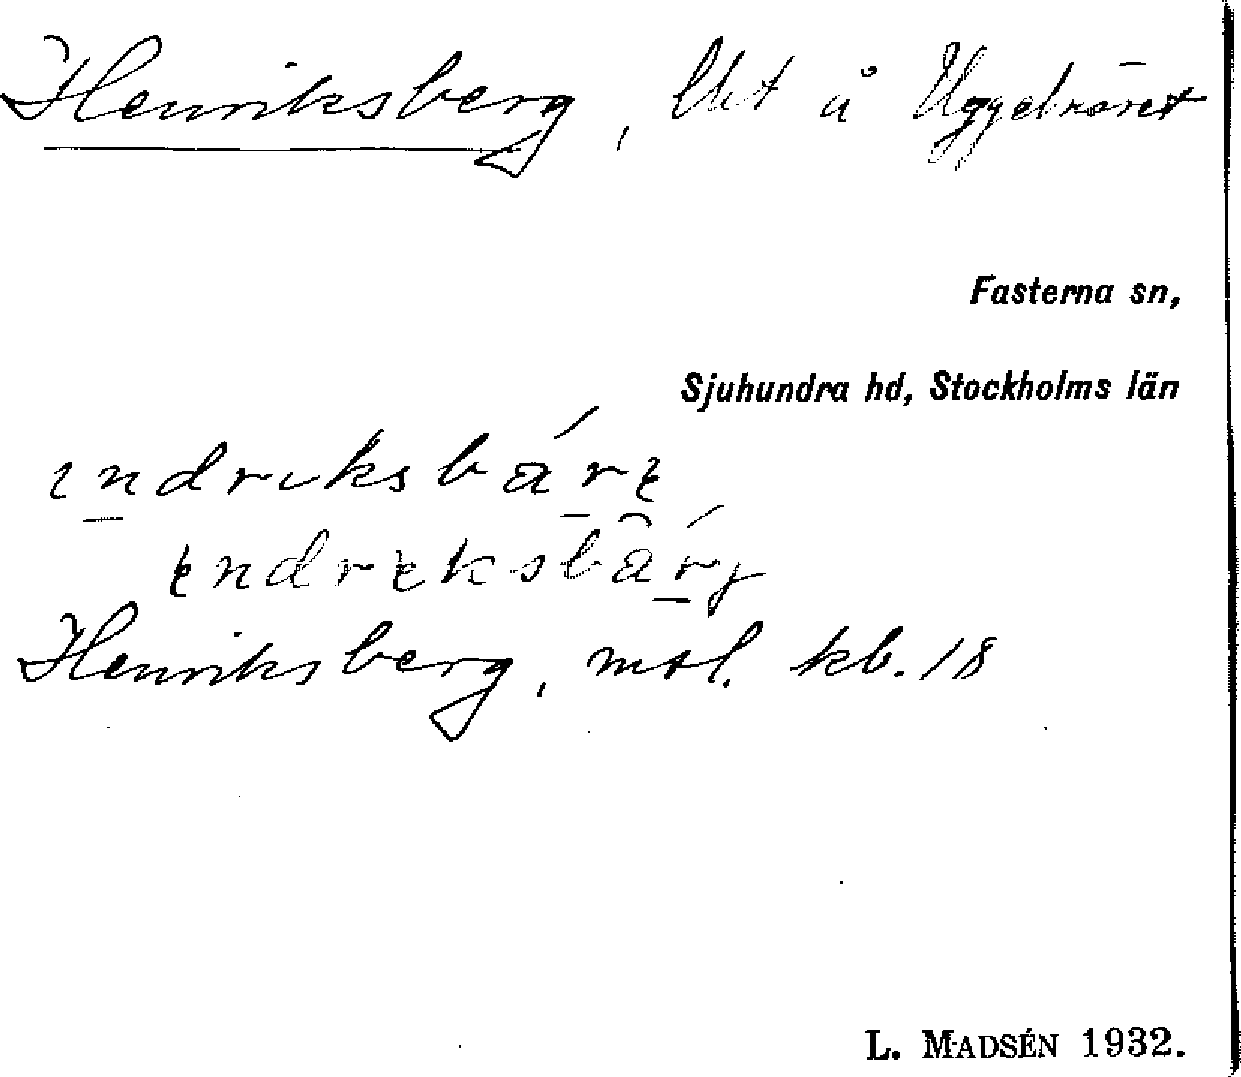 Henriksberg, lht å Uggelröret
Fasterna sn,
Sjuhundra hd, Stockholms län
Henriksberg, mtl. kb. 18
L. MADSÉN 1932.